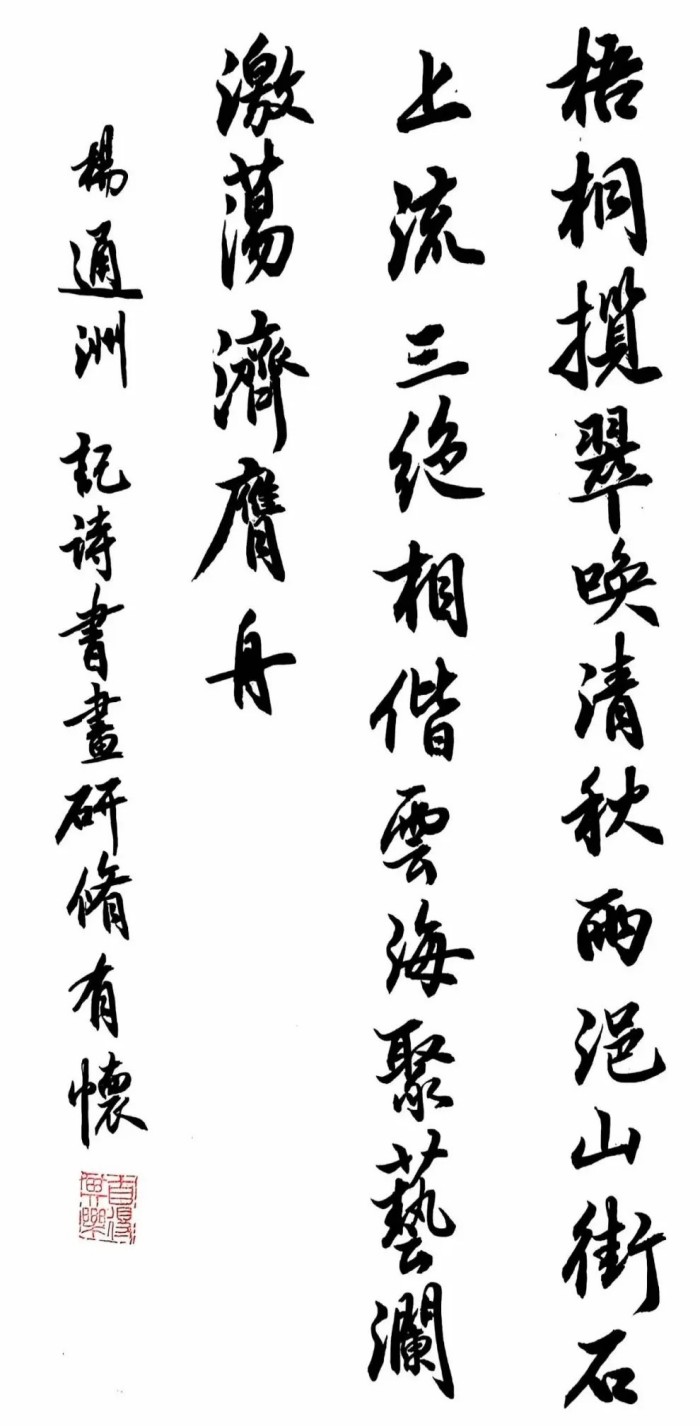 梧桐攬翠喚清秋雨浥山街石
上流三絕相偕雲海聚藝瀾
激蕩濟膺舟
楊通洲 記诗書畫研脩有懷